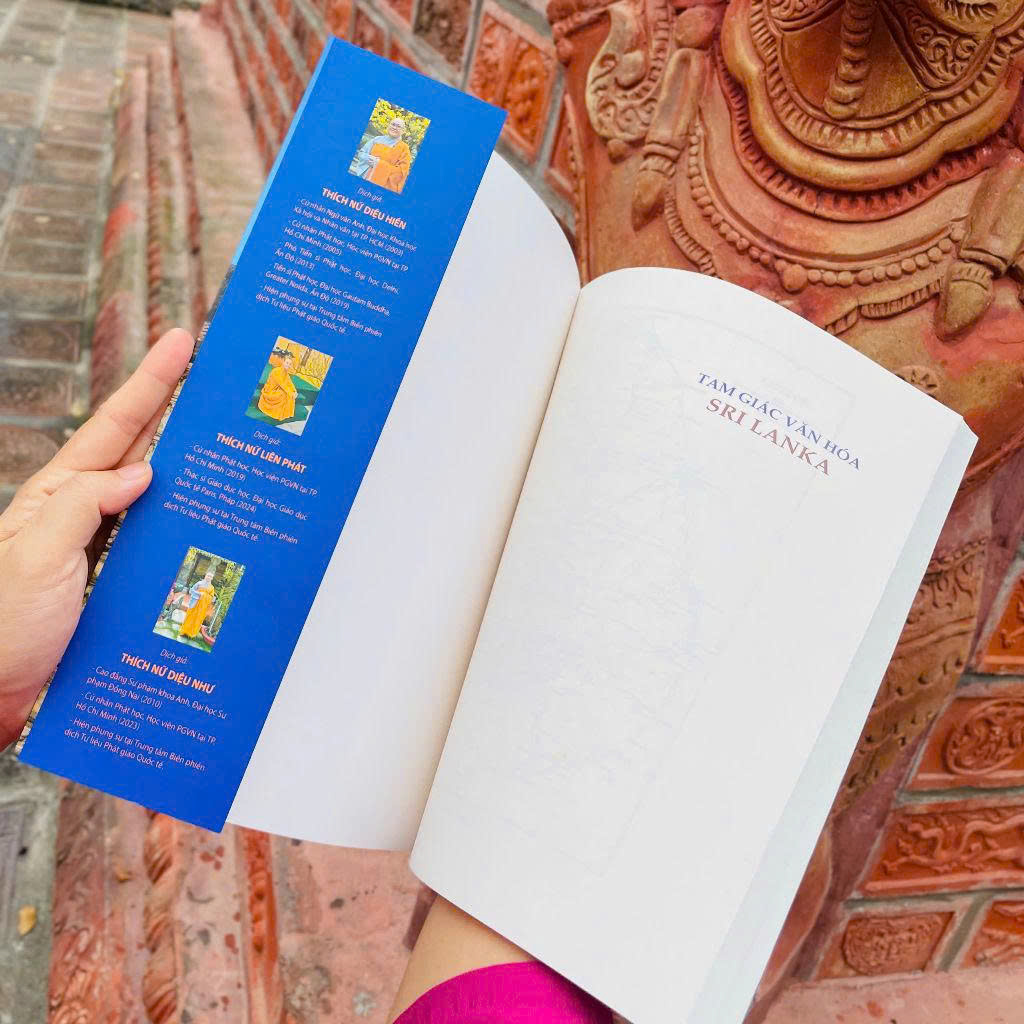 Dịch giả:
THÍCH NỮ DIỆU HIỀN
- Cử nhân Ngữ văn Anh, Đại học Khoa học
Xã hội và Nhân văn tại TP. HCM (2003)
- Cử nhân Phật học, Học viện PGVN tại TP.
Hồ Chí Minh (2005)
- Phó Tiến sĩ Phật học, Đại học Delhi,
Ấn Độ (2013)
- Tiến sĩ Phật học, Đại học Gautam Buddha,
Greater Noida, Ấn Độ (2019)
- Hiện phụng sự tại Trung tâm Biên phiên
dịch Tư liệu Phật giáo Quốc tế.
Dịch giả:
THÍCH NỮ LIÊN PHÁT
- Cử nhân Phật học, Học viện PGVN tại TP.
Hồ Chí Minh (2019)
- Thạc sĩ Giáo dục học, Đại học Giáo dục
Quốc tế Paris, Pháp (2024)
- Hiện phụng sự tại Trung tâm Biên phiên
dịch Tư liệu Phật giáo Quốc tế.
Dịch giả:
THÍCH NỮ DIỆU NHƯ
- Cao đẳng Sư phạm khoa Anh, Đại học Sư
phạm Đồng Nai (2010)
- Cử nhân Phật học, Học viện PGVN tại TP.
Hồ Chí Minh (2023)
- Hiện phụng sự tại Trung tâm Biên phiên
dịch Tư liệu Phật giáo Quốc tế.
TAM GIÁC VĂN HÓA
SRI LANKA